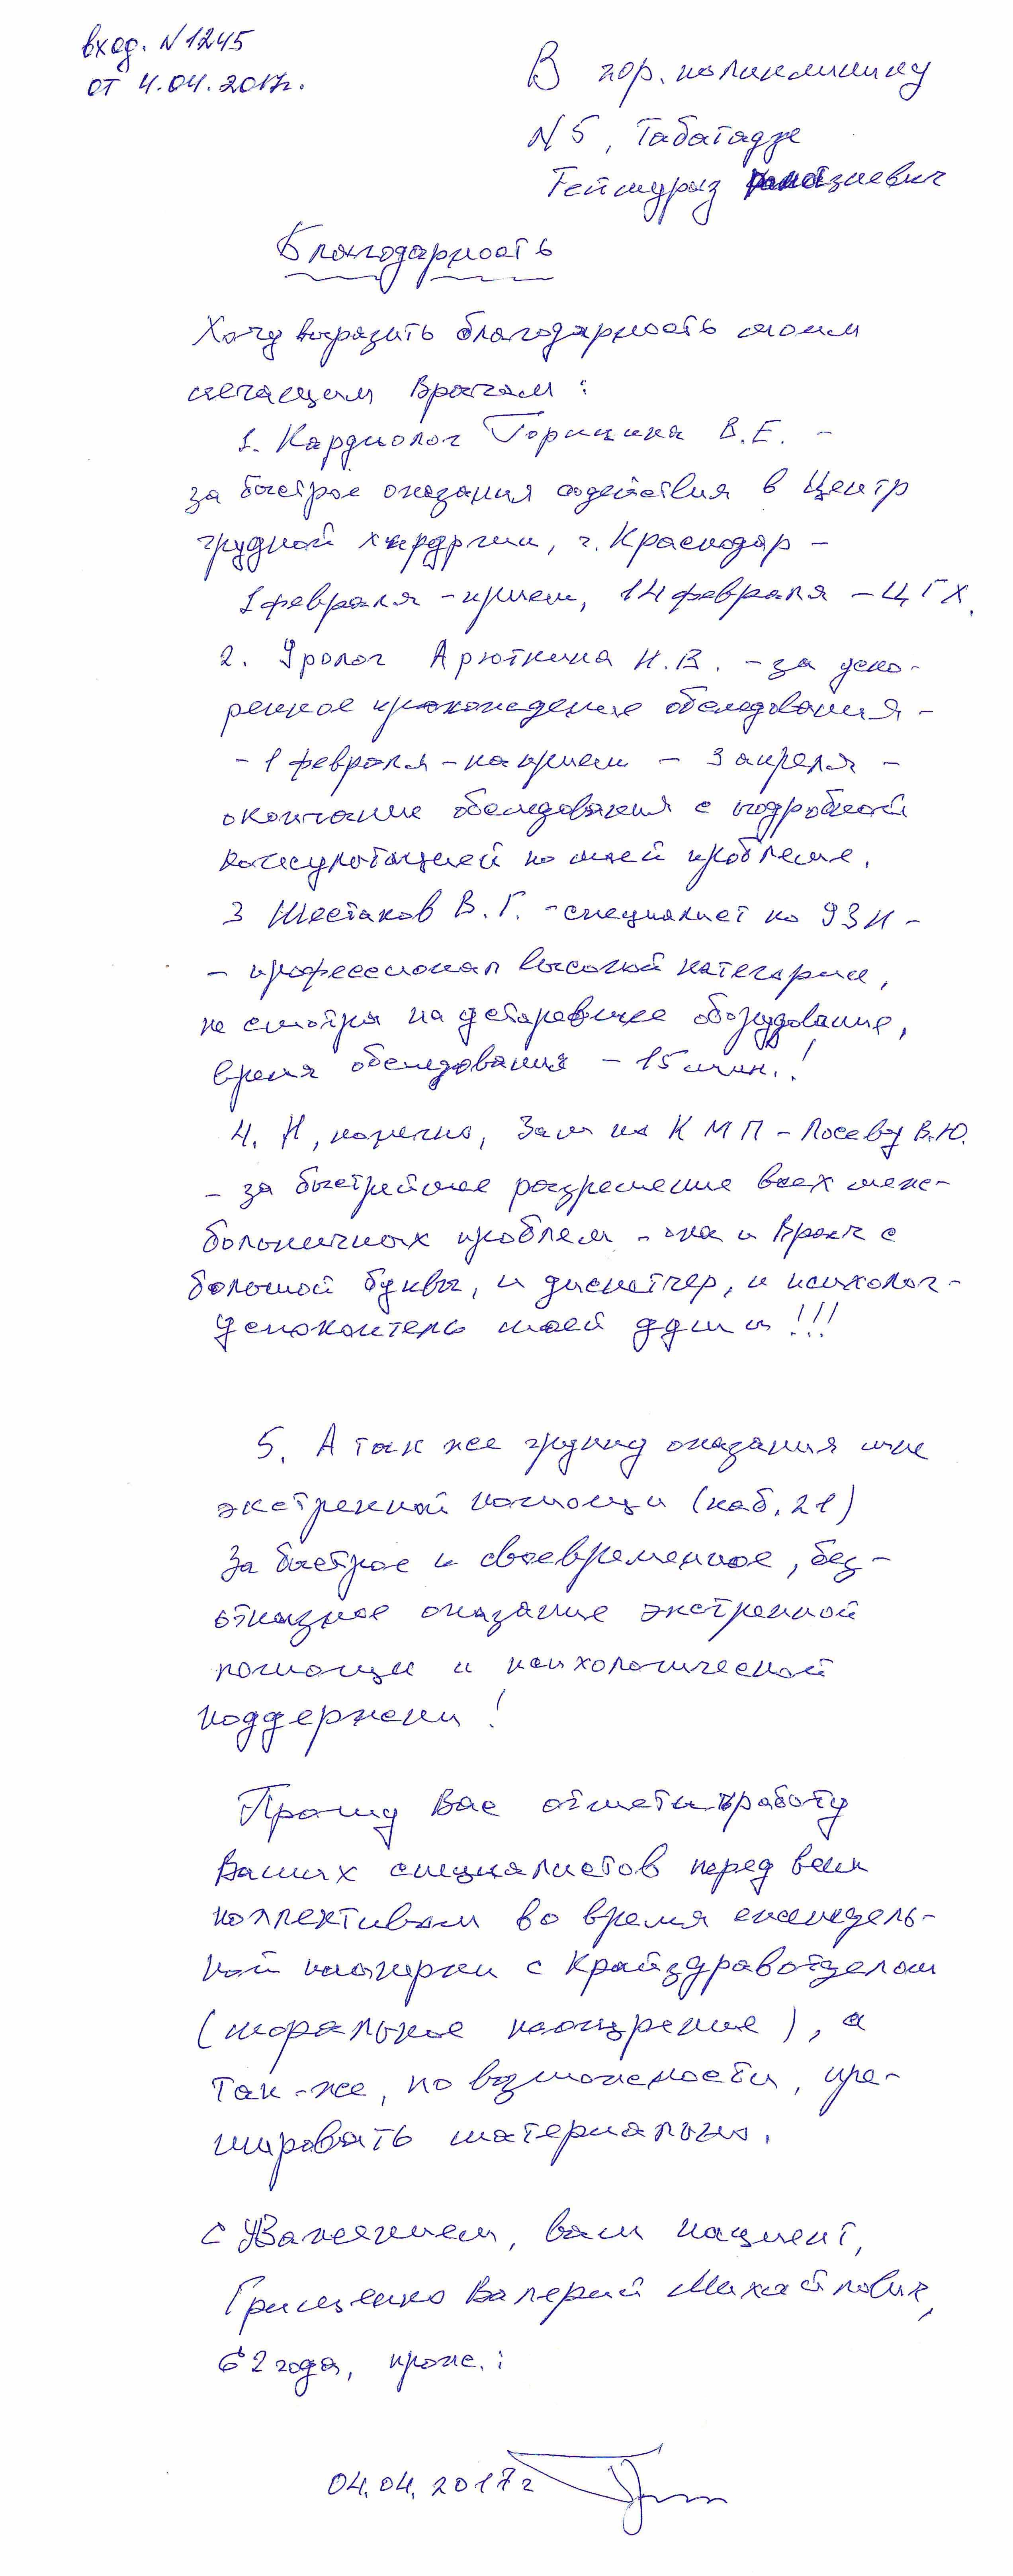 вход. N 1245
от 4.04.2017г.
В гор. поликлинику
N 5, Табатадзе
Теймураз
Благодарность
Хочу выразить благодарность моим
лечащим врачам:
1. Кардиолог Горицина В.Е. –
за быстрое оказания содействия в Центр
грудной хирургии, г. Краснодар –
1 февраля – прием, 14 февраля – ЦГХ.
2. Уролог Арюткина Н.В. – за уско-
ренное прохождение обследования –
- 1 февраля – на прием – 3 апреля –
окончание обследования с подробной
консультацией по моей проблеме.
3 Шестаков В.Г. – специалист по УЗИ –
– профессионал высокой категории,
не смотря на устаревшее оборудование,
время обследования – 15 мин.!
4. И, конечно, Зам по КМП – Лосеву В.Ю.
– за быстрейшее разрешение всех меж-
больничных проблем – она и Врач с
большой буквы, и диспетчер, и психолог-
успокоитель моей души!!!
5. А так же группу оказания мне
экстренной помощи (каб. 21)
За быстрое и своевременное, без-
отказное оказание экстренной
помощи и психологической
поддержки!
Прошу Вас отметить работу
Ваших специалистов перед всем
коллективом во время еженедель-
ной планерки с Крайздравотделом
(моральное поощрение), а
так-же, по возможности, пре-
мировать материально.
С Уважением, ваш пациент,
Грищенко Валерий Михайлович,
62 года, прож.:
04.04.2017г